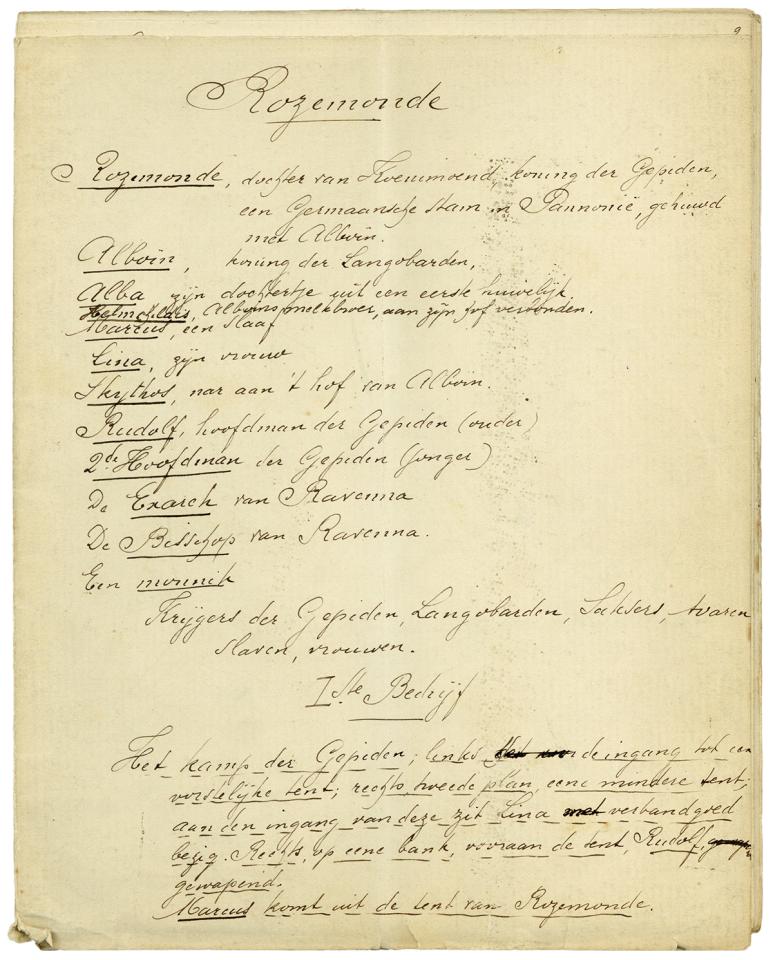 9
Rozemonde
Rozemonde, dochter van Koenimoend, koning der Gepiden,
een Germaansche stam in Pannonië, gehuwd
met Alboïn.
Alboïn, koning der Langobarden,
Alba zijn dochtertje uit een eerste huwelijk.
Helmchildis, Alboïns melkbroer, aan zijn hof verbonden.
Marcus, een slaaf
Lina, zijn vrouw
Skythos, nar aan 't hof van Alboïn.
Rudolf, hoofdman der Gepiden (ouder)
2de Hoofdman der Gepiden (jonger)
De Exarch van Ravenna
De Bisschop van Ravenna.
Een monnik
Krijgers der Gepiden, Langobarden, Saksers, Avaren
slaven, vrouwen.
Iste Bedrijf
Het kamp der Gepiden; links de ingang tot een
vorstelijke tent; rechts, tweede plan, eene mindere tent;
aan den ingang van deze zit Lina met verbandgoed
bezig. Rechts, op eene bank, vooraan de tent, Rudolf,
gewapend.
Marcus komt uit de tent van Rozemonde.